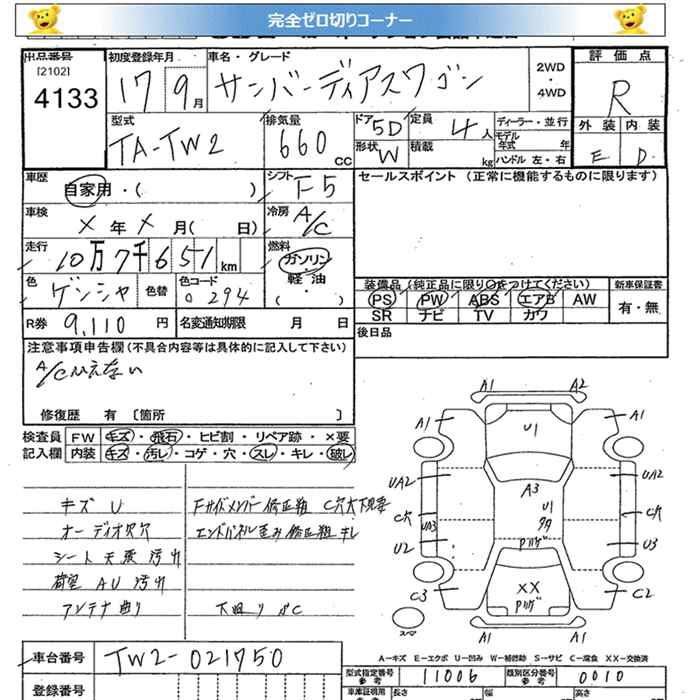 完全ゼロ切りコーナー
出品番号
[2102]
4133
初度登録年月
17 9月
車名・グレード
サンバーディアスワゴン
2WD
・
4WD
評価点
R
外装 内装
E D
型式
TA-TW2
排気量
660 CC
ドア 5D
形状 W
定員 4人
積載 kg
ディーラー・並行
モデル年式 年
ハンドル 左・右
車歴
自家用・( )
シフト F5
セールスポイント (正常に機能するものに限ります)
車検
X 年 X 月( 日)
冷房 A/C
走行
10万7千651km
燃料
ガソリン
・
軽油
( )
色 ゲンシャ
色替
色コード 0294
装備品(純正品に限り○をつけてください)
PS PW ABS エアB AW
SR ナビ TV カワ
新車保証書
有・無
R券 9,110 円
名変通知期限 月 日
後日品
注意事項申告欄(不具合内容等は具体的に記入して下さい)
A/Cひえない
修復歴 有 〔箇所 〕
検査員 FW キズ・飛石・ヒビ割・リペア跡・×要
記入欄 内装 キズ・汚し・コゲ・穴・スレ・キレ・破し
キズ U
オーディオ穴穴
シート天張汚れ
荷室 AU 汚れ
アンテナ曲り
Fサイドメンバー修正粗 C穴大下見要
エンドパネル歪み修正粗キレ
下回りサC
A1 A2
A1 U1 A1
UA2 A3 UA2
C穴 U1 C穴
UA3
U2 Pハゲ U3
C3 XX C2
Pハゲ
スペア
A1 A1
A−キズ E−エクボ U−凹み W−補修跡 S−サビ C−腐食 XX−交換済
車台番号 TW2-021750
型式指定番号
参考
11006
類別区分番号
参考
0010
登録番号
車庫証明用
長さ 幅 高さ